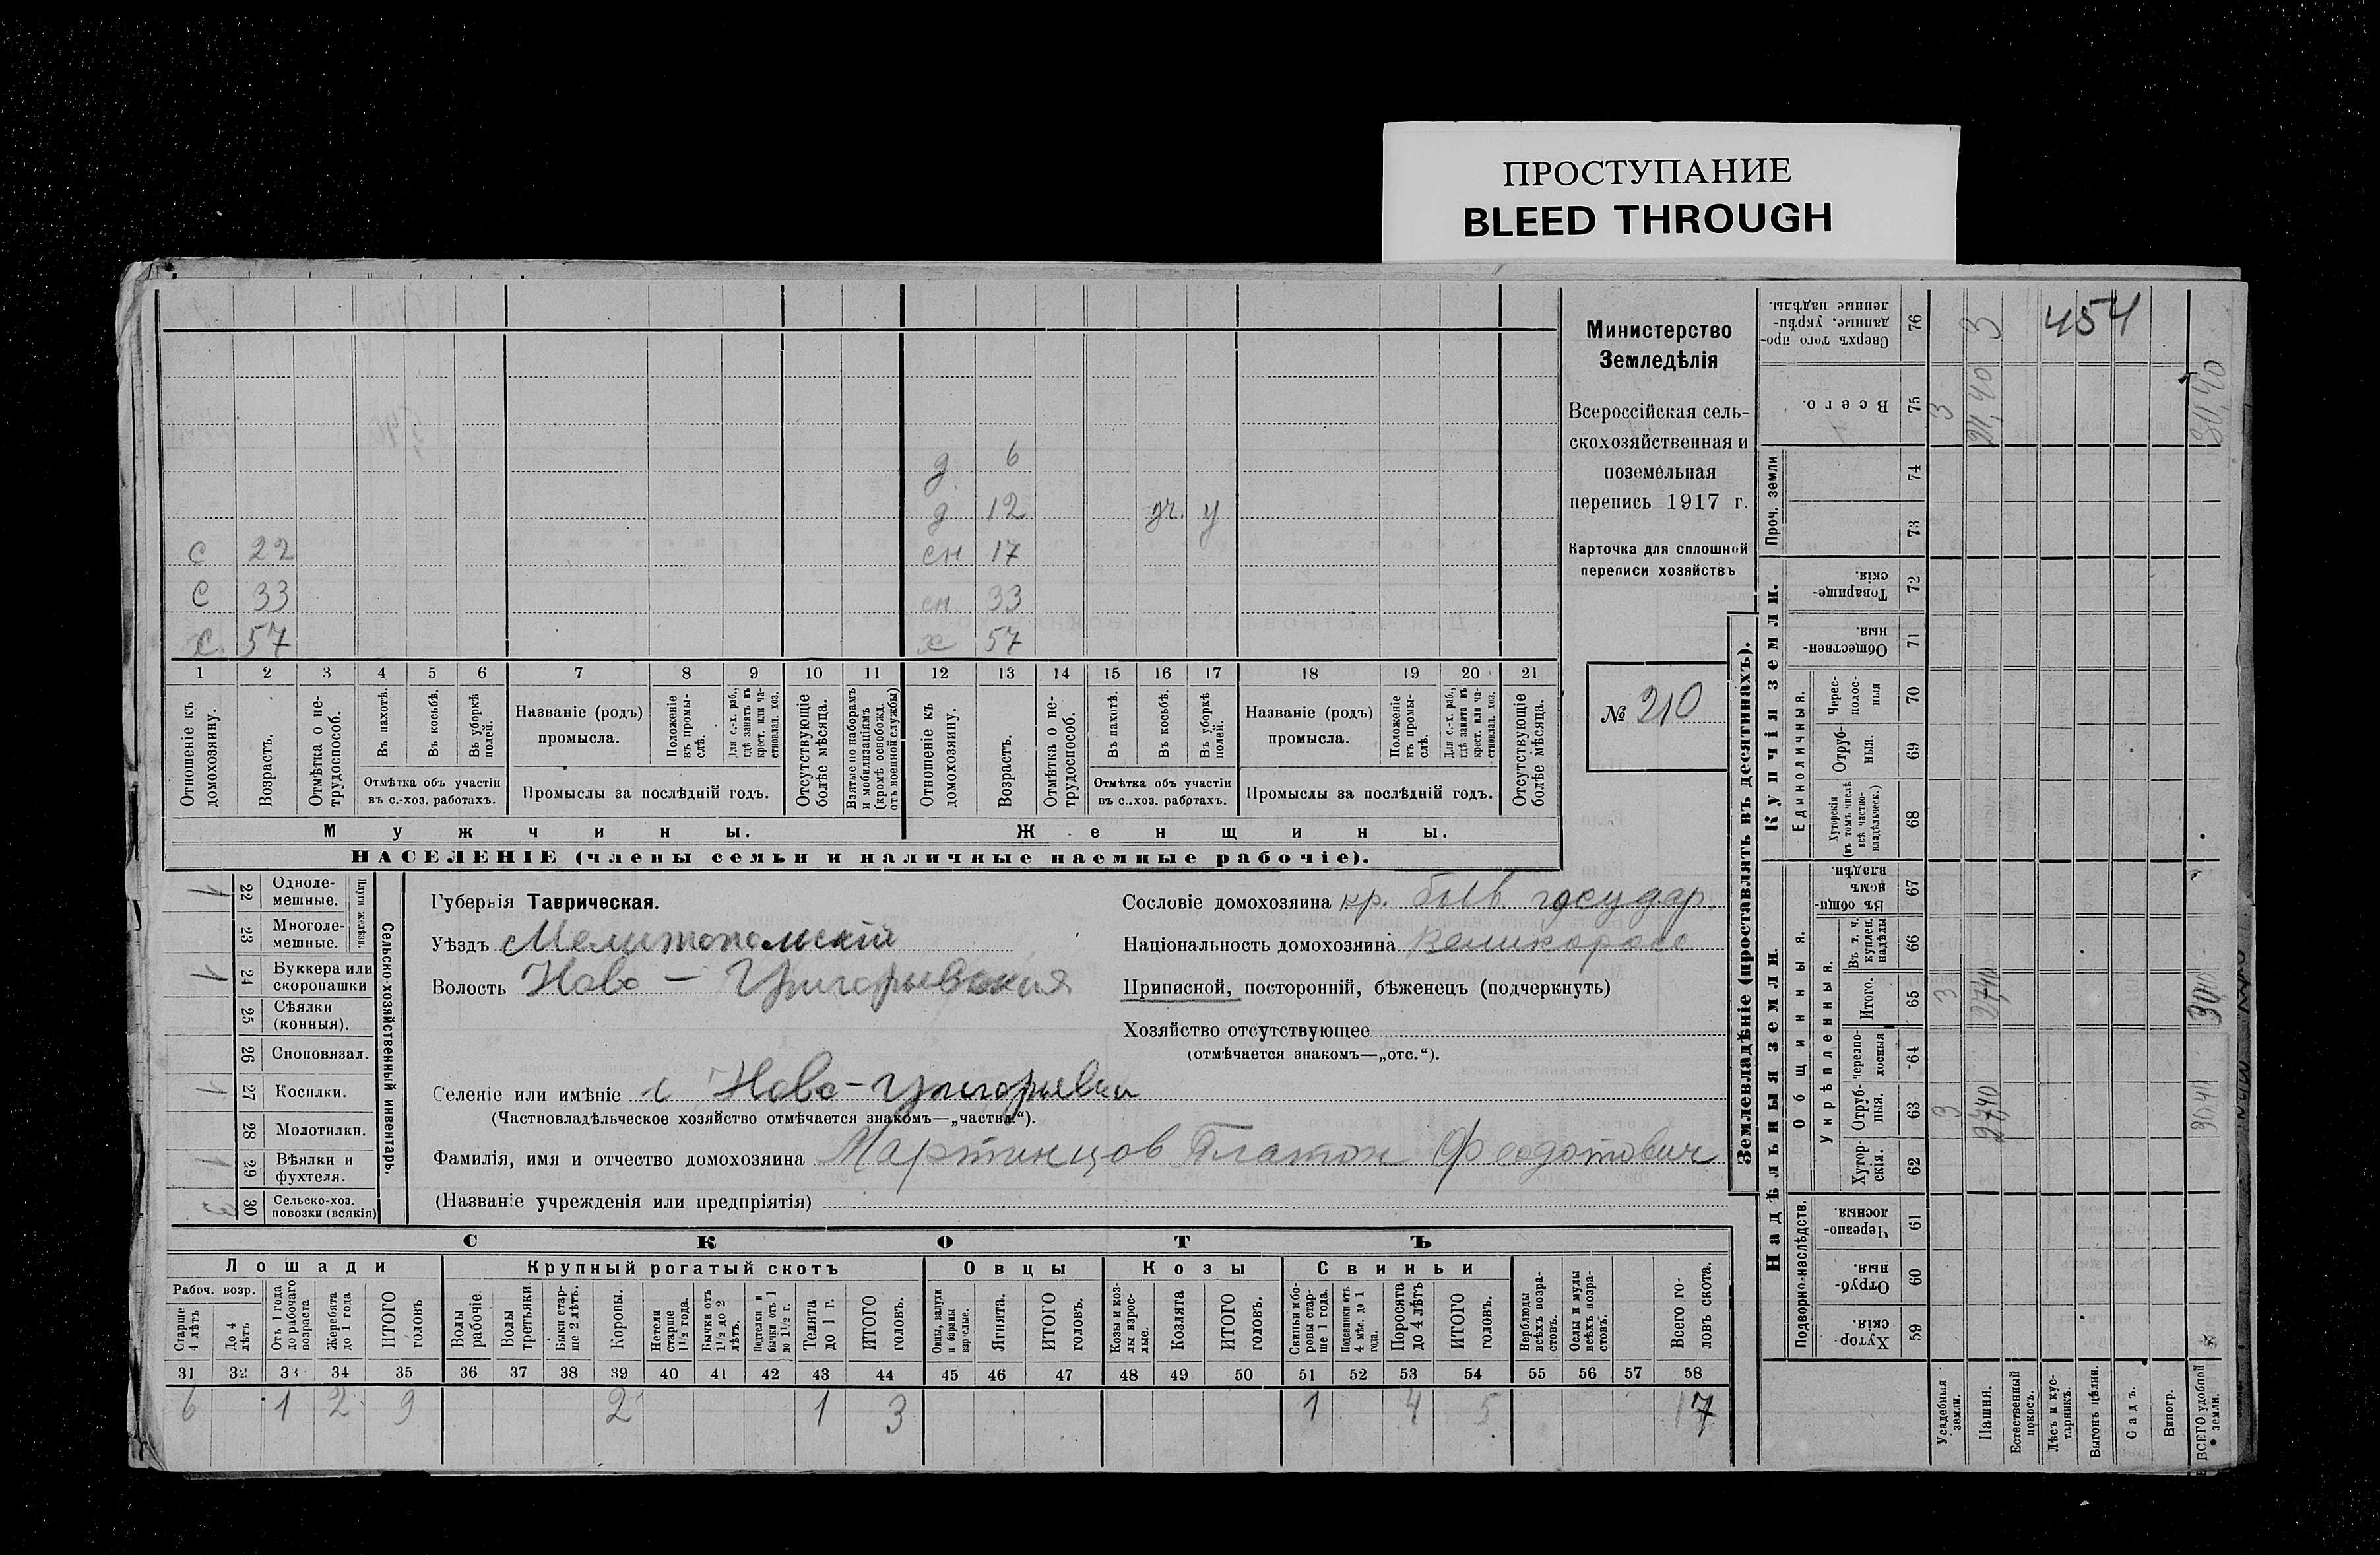 ПРОСТУПАНИЕ
BLEED THROUGH
д 6
д 12 у
с 22 сн 17
с 33 сн 33
х 57 х 57
1 2 3 4 5 6 7 8 9 10 11 12 13 14 15 16 17 18 19 20 21
Отношеніе къ домохозяину.
Возрастъ.
Отмѣтка о не-трудоспособ.
Въ пахотѣ.
Въ косьбѣ.
Въ уборкѣ полей.
Отмѣтка объ участіи
въ с.-хоз. работахъ.
Названіе (родъ)
промысла.
Положеніе въ промы-слѣ.
Для с.-х. раб., гдѣ занятъ въ крест. или ча-стновлад. хоз.
Промыслы за послѣдній годъ.
Отсутствующіе болѣе мѣсяца.
Взятые по наборамъ и мобилизаціямъ (кромѣ освобожд. отъ военной службы)
Отношеніе къ домохозяину.
Возрастъ.
Отмѣтка о не-трудоспособ.
Въ пахотѣ.
Въ косьбѣ.
Въ уборкѣ полей.
Отмѣтка объ участіи
въ с.-хоз. работахъ.
Названіе (родъ)
промысла.
Положеніе въ промы-слѣ.
Для с.-х. раб., гдѣ занята въ крест. или ча-стновлад. хоз.
Промыслы за послѣдній годъ.
Отсутствующіе болѣе мѣсяца.
Мужчины. Женщины.
НАСЕЛЕНІЕ (члены семьи и наличные наемные рабочіе).
Министерство
Земледѣлія
Всероссійская сель-
скохозяйственная и
поземельная
перепись 1917 г.
Карточка для сплошной
переписи хозяйствъ
№ 210
Сельско-хозяйственный инвентарь.
Плуги желѣзн.
1 22 Одноле-мешные.
23 Многоле-мешные.
1 24 Буккера или скоропашки
25 Сѣялки (конныя).
26 Сноповязал.
1 27 Косилки.
28 Молотилки.
1 29 Вѣялки и фухтеля.
30 Сельско-хоз. повозки (всякія)
Губернія Таврическая.
Уѣздъ Мелитопольскій
Волость Ново-Григорьевская
Селеніе или имѣніе с Ново-Григорьевка
(Частновладѣльческое хозяйство отмѣчается знакомъ—„частвл.“).
Фамилія, имя и отчество домохозяина Мартинцов Платон Феодотович
(Названіе учрежденія или предпріятія)
Сословіе домохозяина кр. быв государ.
Національность домохозяина Великоросс
Приписной, посторонній, бѣженецъ (подчеркнуть)
Хозяйство отсутствующее
(отмѣчается знакомъ—„отс.“).
СКОТЪ
Лошади Крупный рогатый скотъ Овцы Козы Свиньи
Рабоч. возр.
Старше 4 лѣтъ
До 4 лѣтъ
Отъ 1 года до рабочаго возраста
Жеребята до 1 года
ИТОГО головъ
Волы рабочіе.
Волы третьяки
Быки стар-ше 2 лѣтъ.
Коровы.
Нетели старше 1½ года.
Бычки отъ 1½ до 2 лѣтъ.
Подтелки и бычки отъ 1 до 1½ г.
Телята до 1 г.
ИТОГО головъ.
Овцы, валухи и бараны взрослые.
Ягнята.
ИТОГО головъ.
Козы и коз-лы взрос-лые.
Козлята
ИТОГО головъ.
Свиньи и бо-ровы стар-ше 1 года.
Подсвинки отъ 4 мѣс. до 1 года.
Поросята до 4 лѣтъ
ИТОГО головъ.
Верблюды всѣхъ возра-стовъ.
Ослы и мулы всѣхъ возра-стовъ.
Всего го-ловъ скота.
31 32 33 34 35 36 37 38 39 40 41 42 43 44 45 46 47 48 49 50 51 52 53 54 55 56 57 58
6 1 2 9 2 1 3 1 4 5 17
Землевладѣніе (проставлять въ десятинахъ).
Купчія земли.
Надѣльныя земли.
Сверхъ того про-данные, укрѣп-ленные надѣлы. 76 3 454
Всего. 75 3 21,40 30,40
Проч. земли 74
73
Товарище-скія. 72
Обществен-ныя. 71
Единоличныя.
Черес-полос-ныя 70
Отруб-ныя. 69
Хуторскія (въ томъ числѣ всѣ частно-владѣльческ.) 68
Общинныя.
Въ общи-номъ владѣн. 67
Укрѣпленныя.
Въ т. ч. куплен. надѣлы 66
Итого. 65 3
Черезпо-лосныя 64
Отруб-ныя. 63 3
Хутор-скія. 62
Подворно-наслѣдств.
Черезпо-лосныя 61
Отруб-ныя. 60
Хутор-скія. 59
Усадебныя земли.
Пашня.
Естественный покосъ.
Лѣсъ и кус-тарникъ.
Выгонъ цѣлин.
Садъ.
Виногр.
ВСЕГО удобной земли.